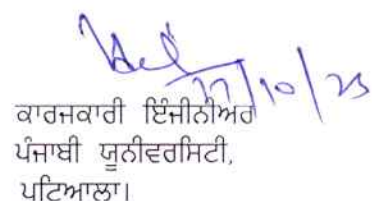 27/10/23
ਕਾਰਜਕਾਰੀ ਇੰਜੀਨੀਅਰ
ਪੰਜਾਬੀ ਯੂਨੀਵਰਸਿਟੀ,
ਪਟਿਆਲਾ।